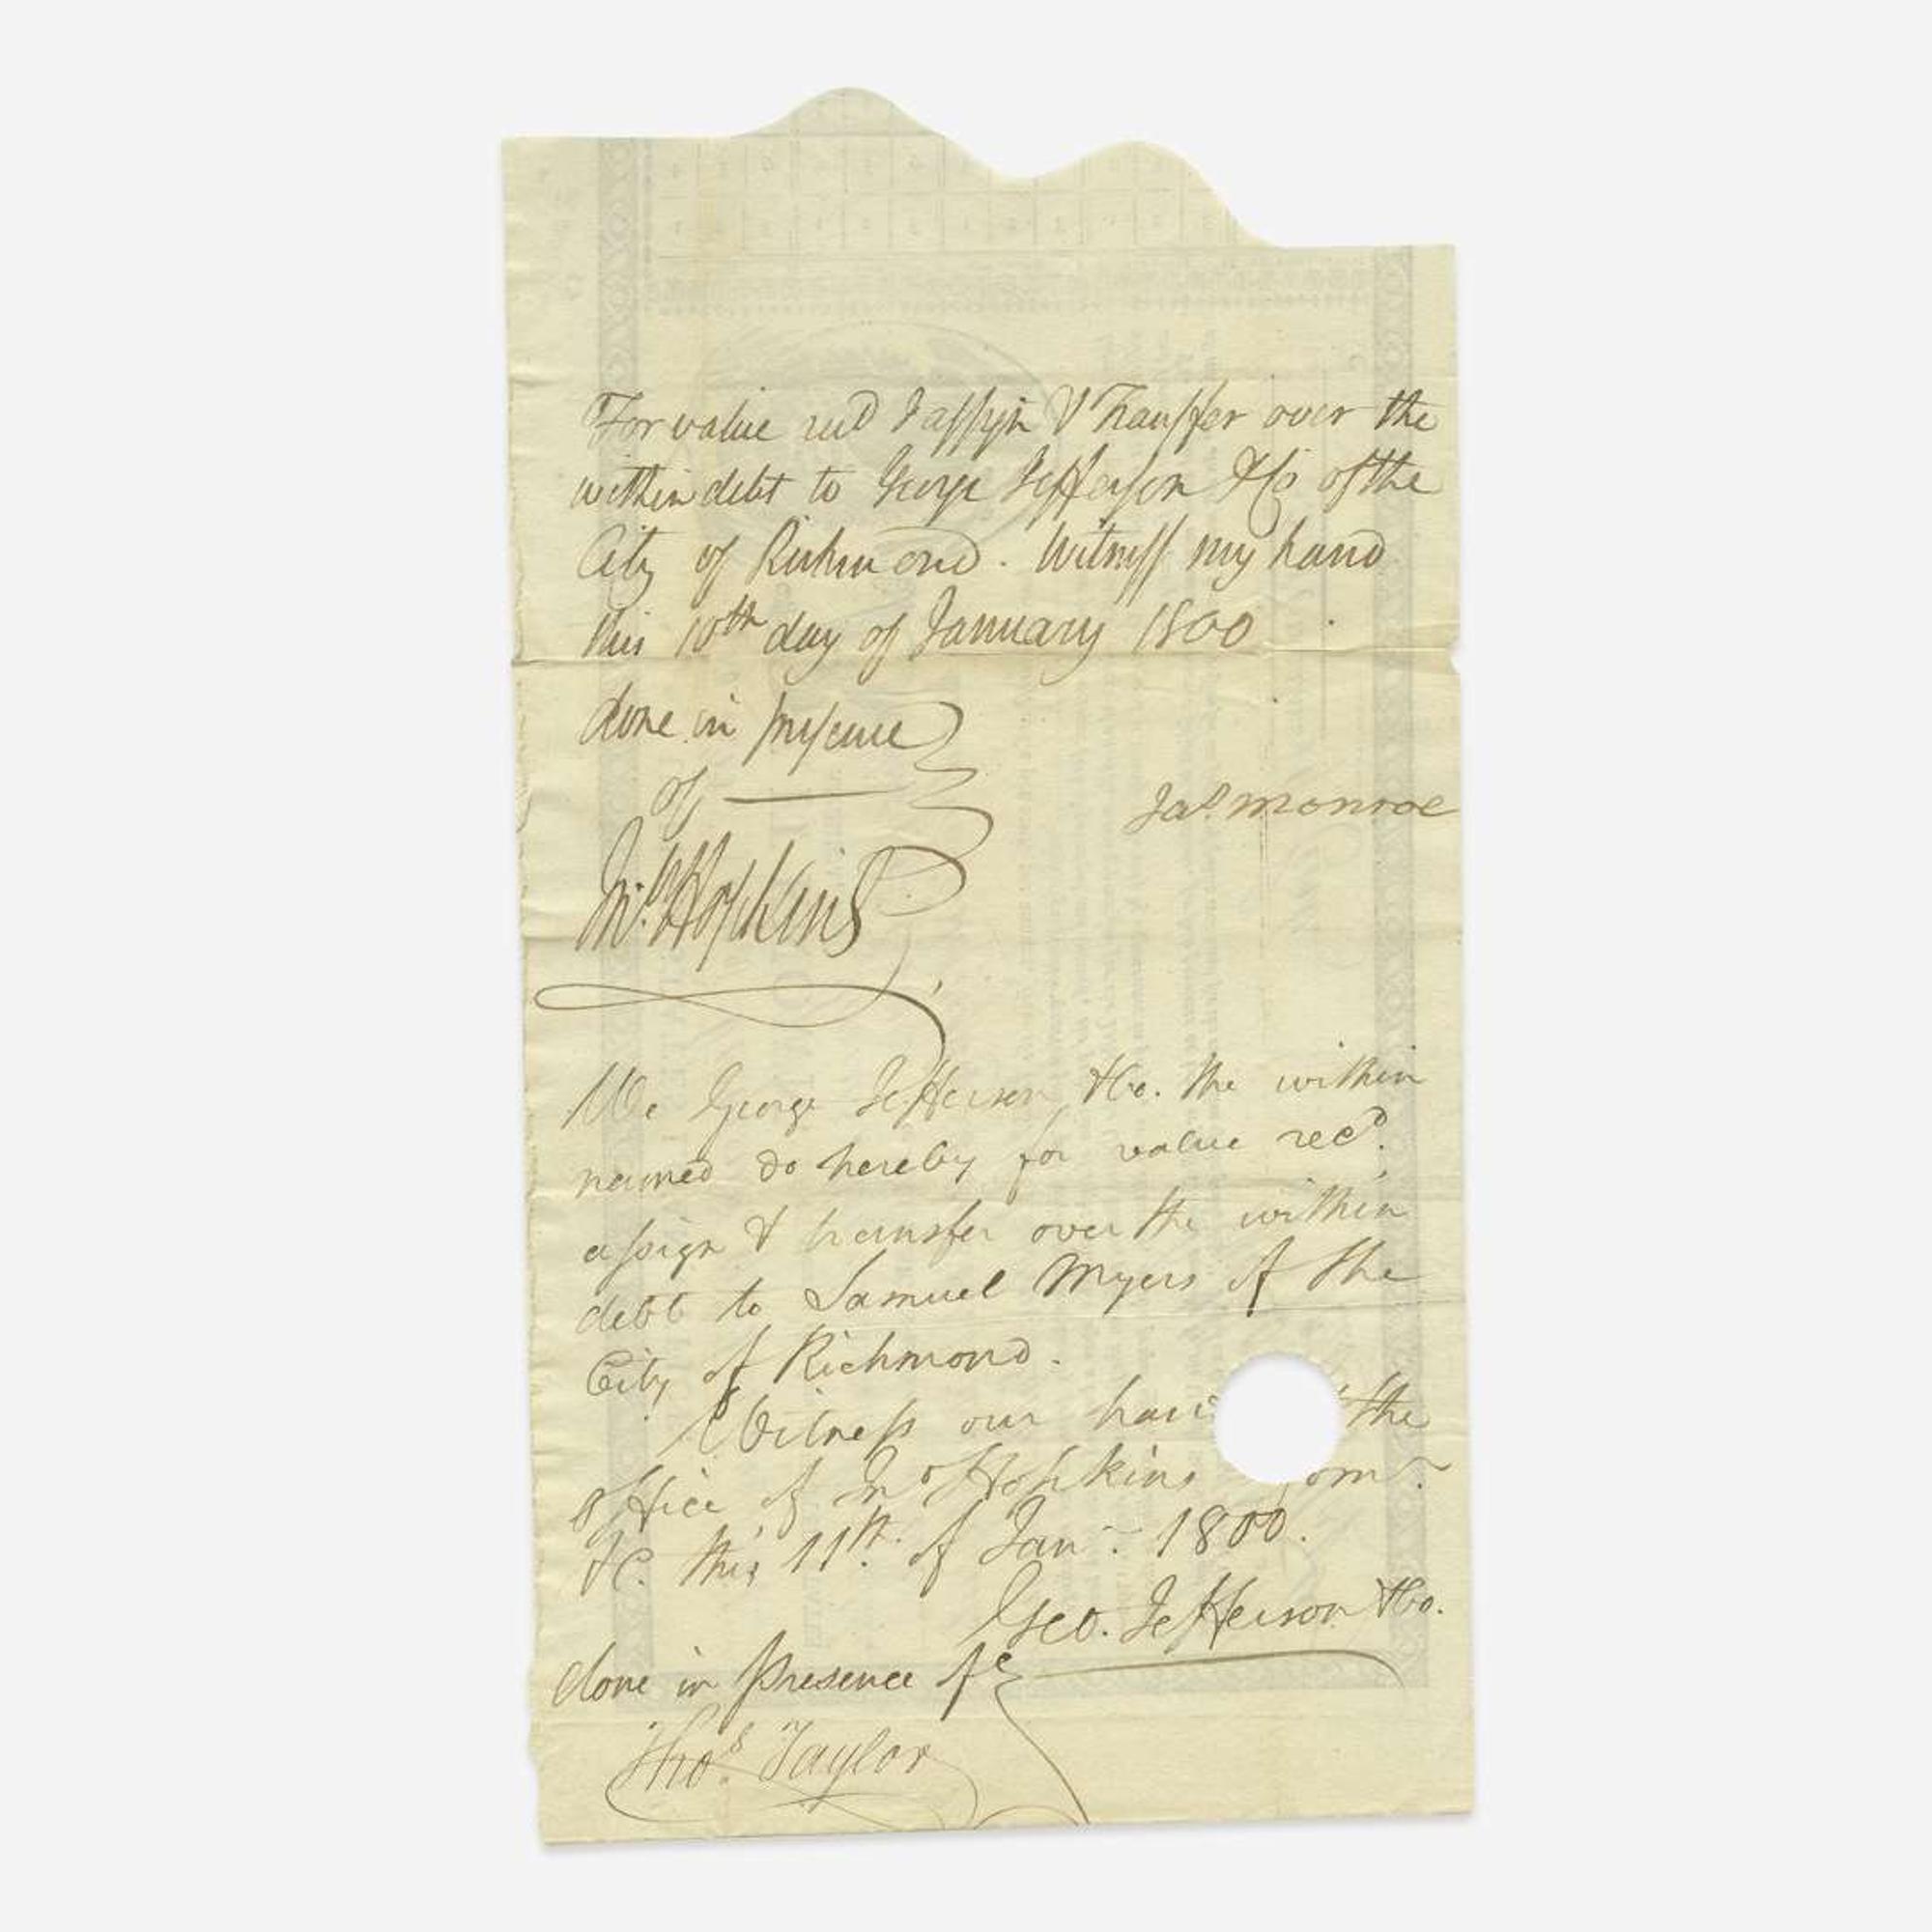 For value recd I assign & Transfer over the
within debt to George Jefferson & Co of the
City of Richmond. Witness my hand
this 10th day of January 1800
done in presence
of
Jas. Monroe
Jno. Hopkins
We George Jefferson & Co. the within
named do hereby for value recd.
assign & transfer over the within
debt to Samuel Myers of the
City of Richmond.
Witness our the
office of Jno Hopkins
&C. this 11th. of Jany. 1800.
Geo. Jefferson & Co.
done in presence of
Thos. Taylor